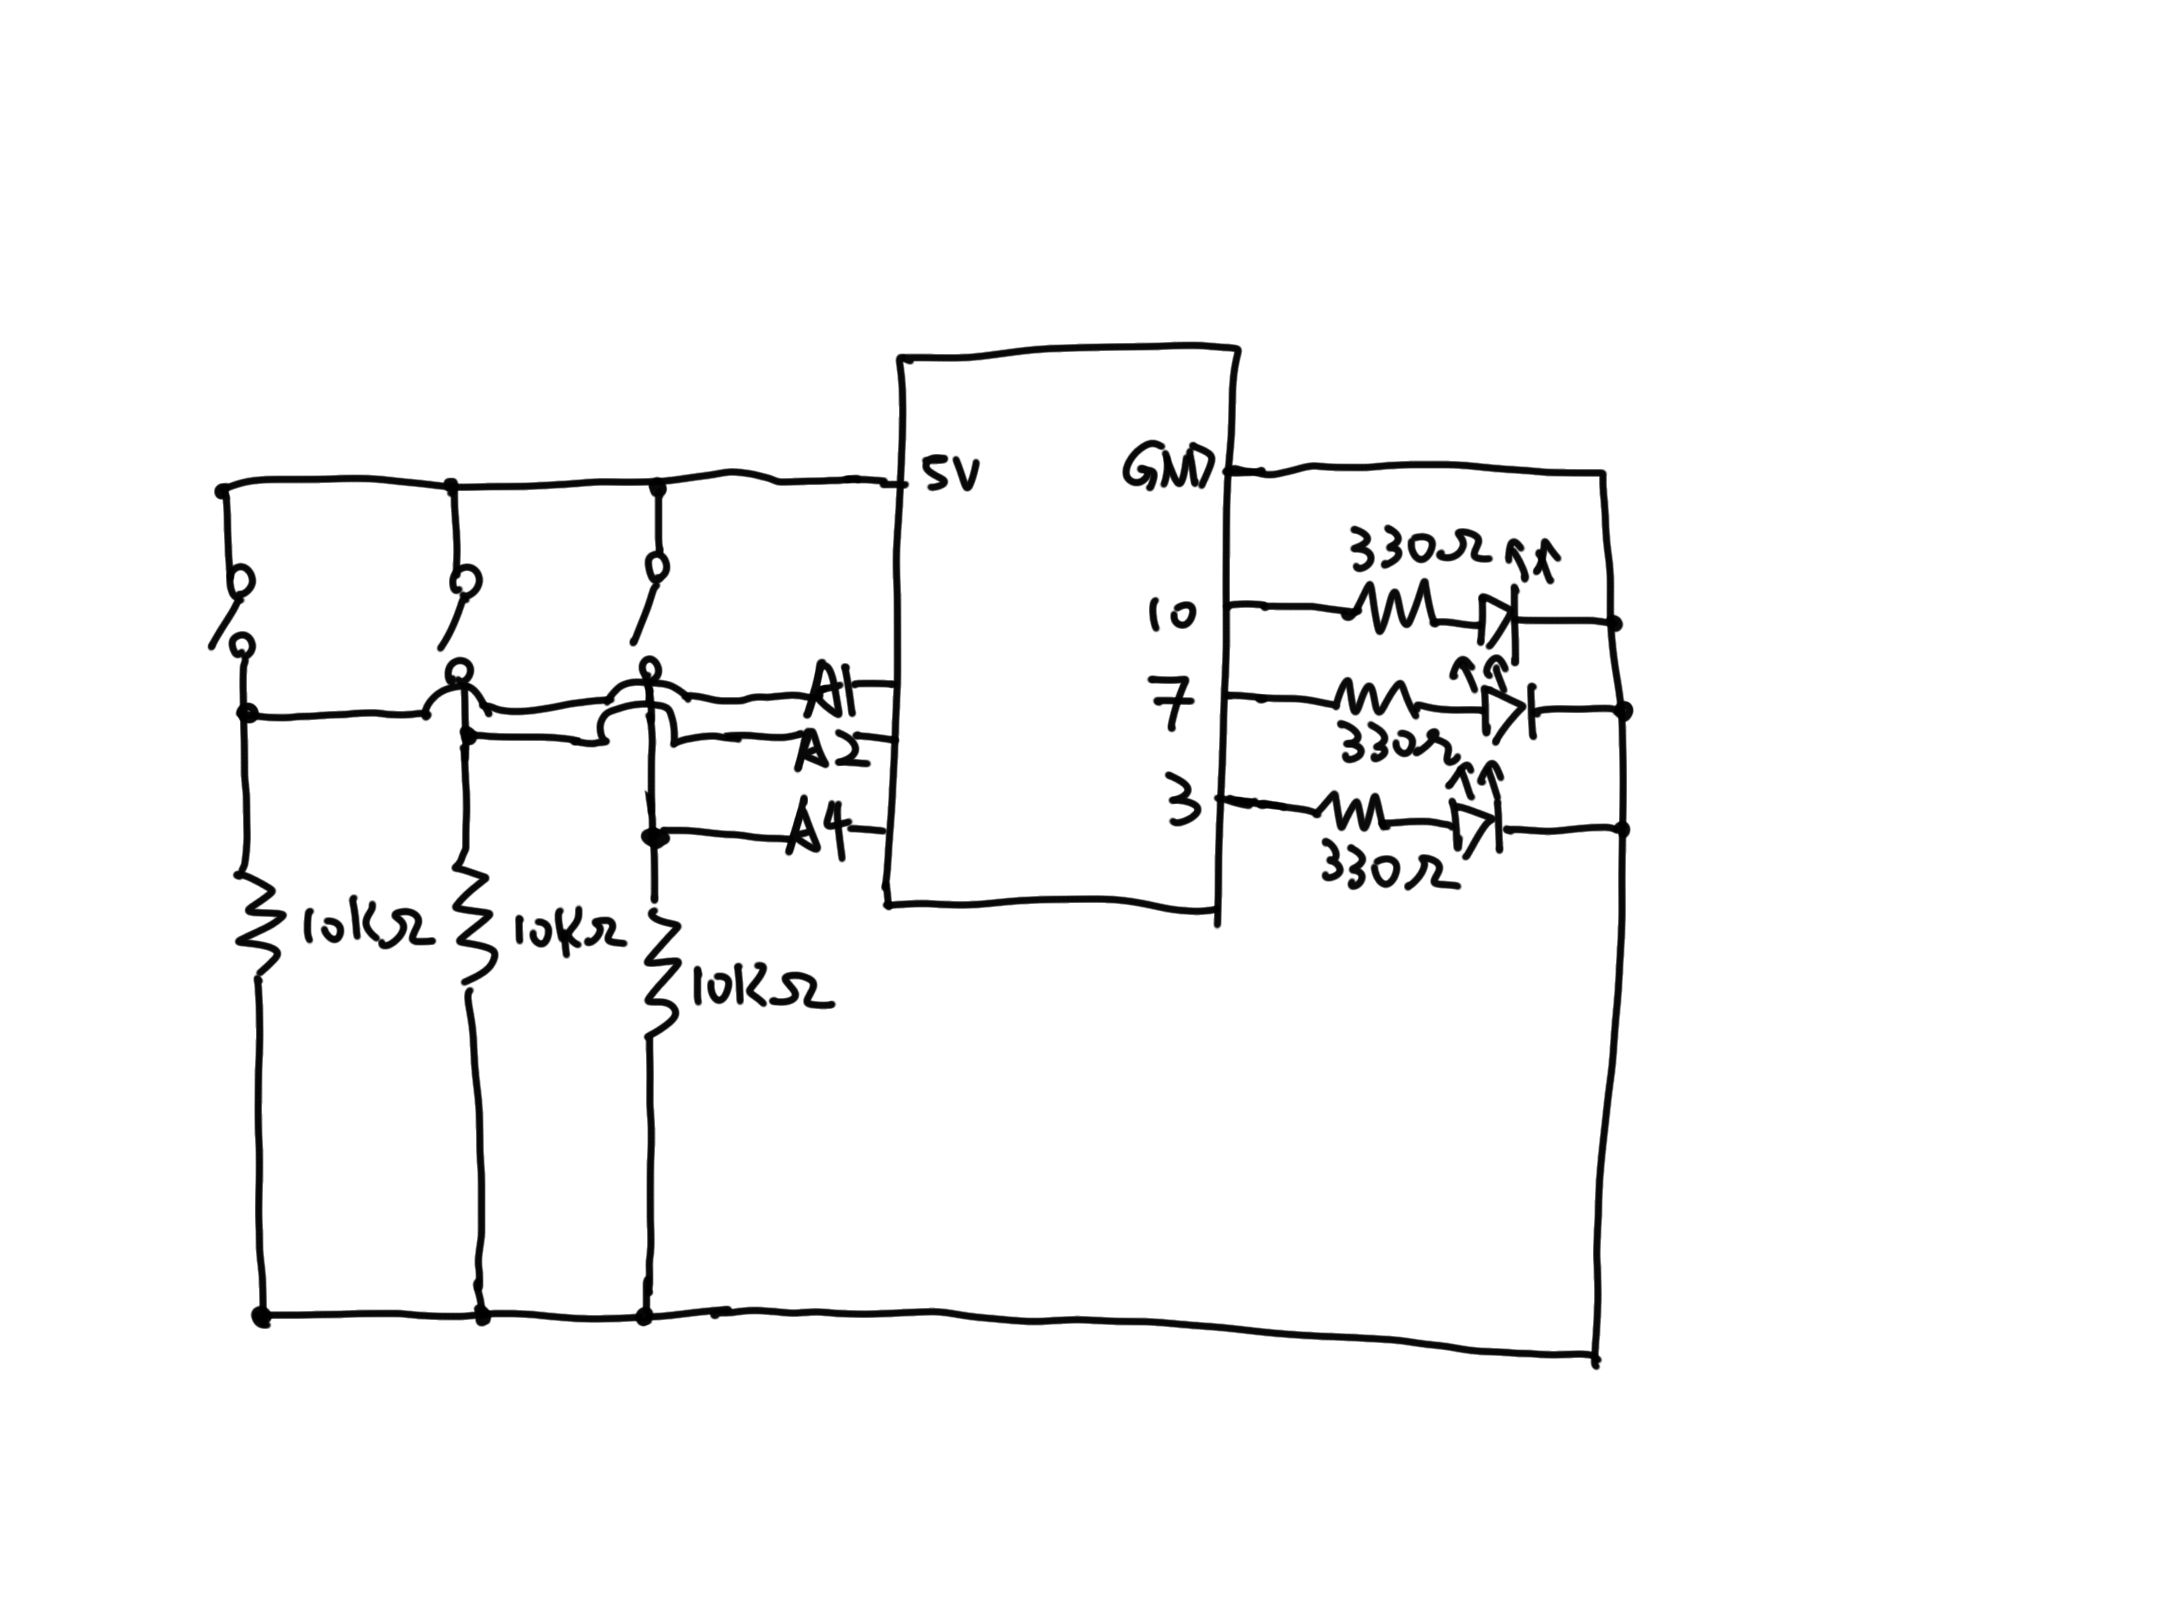 5V
GND
330Ω
10
A1
7
A2
330Ω
3
A4
330Ω
10kΩ
10kΩ
10kΩ